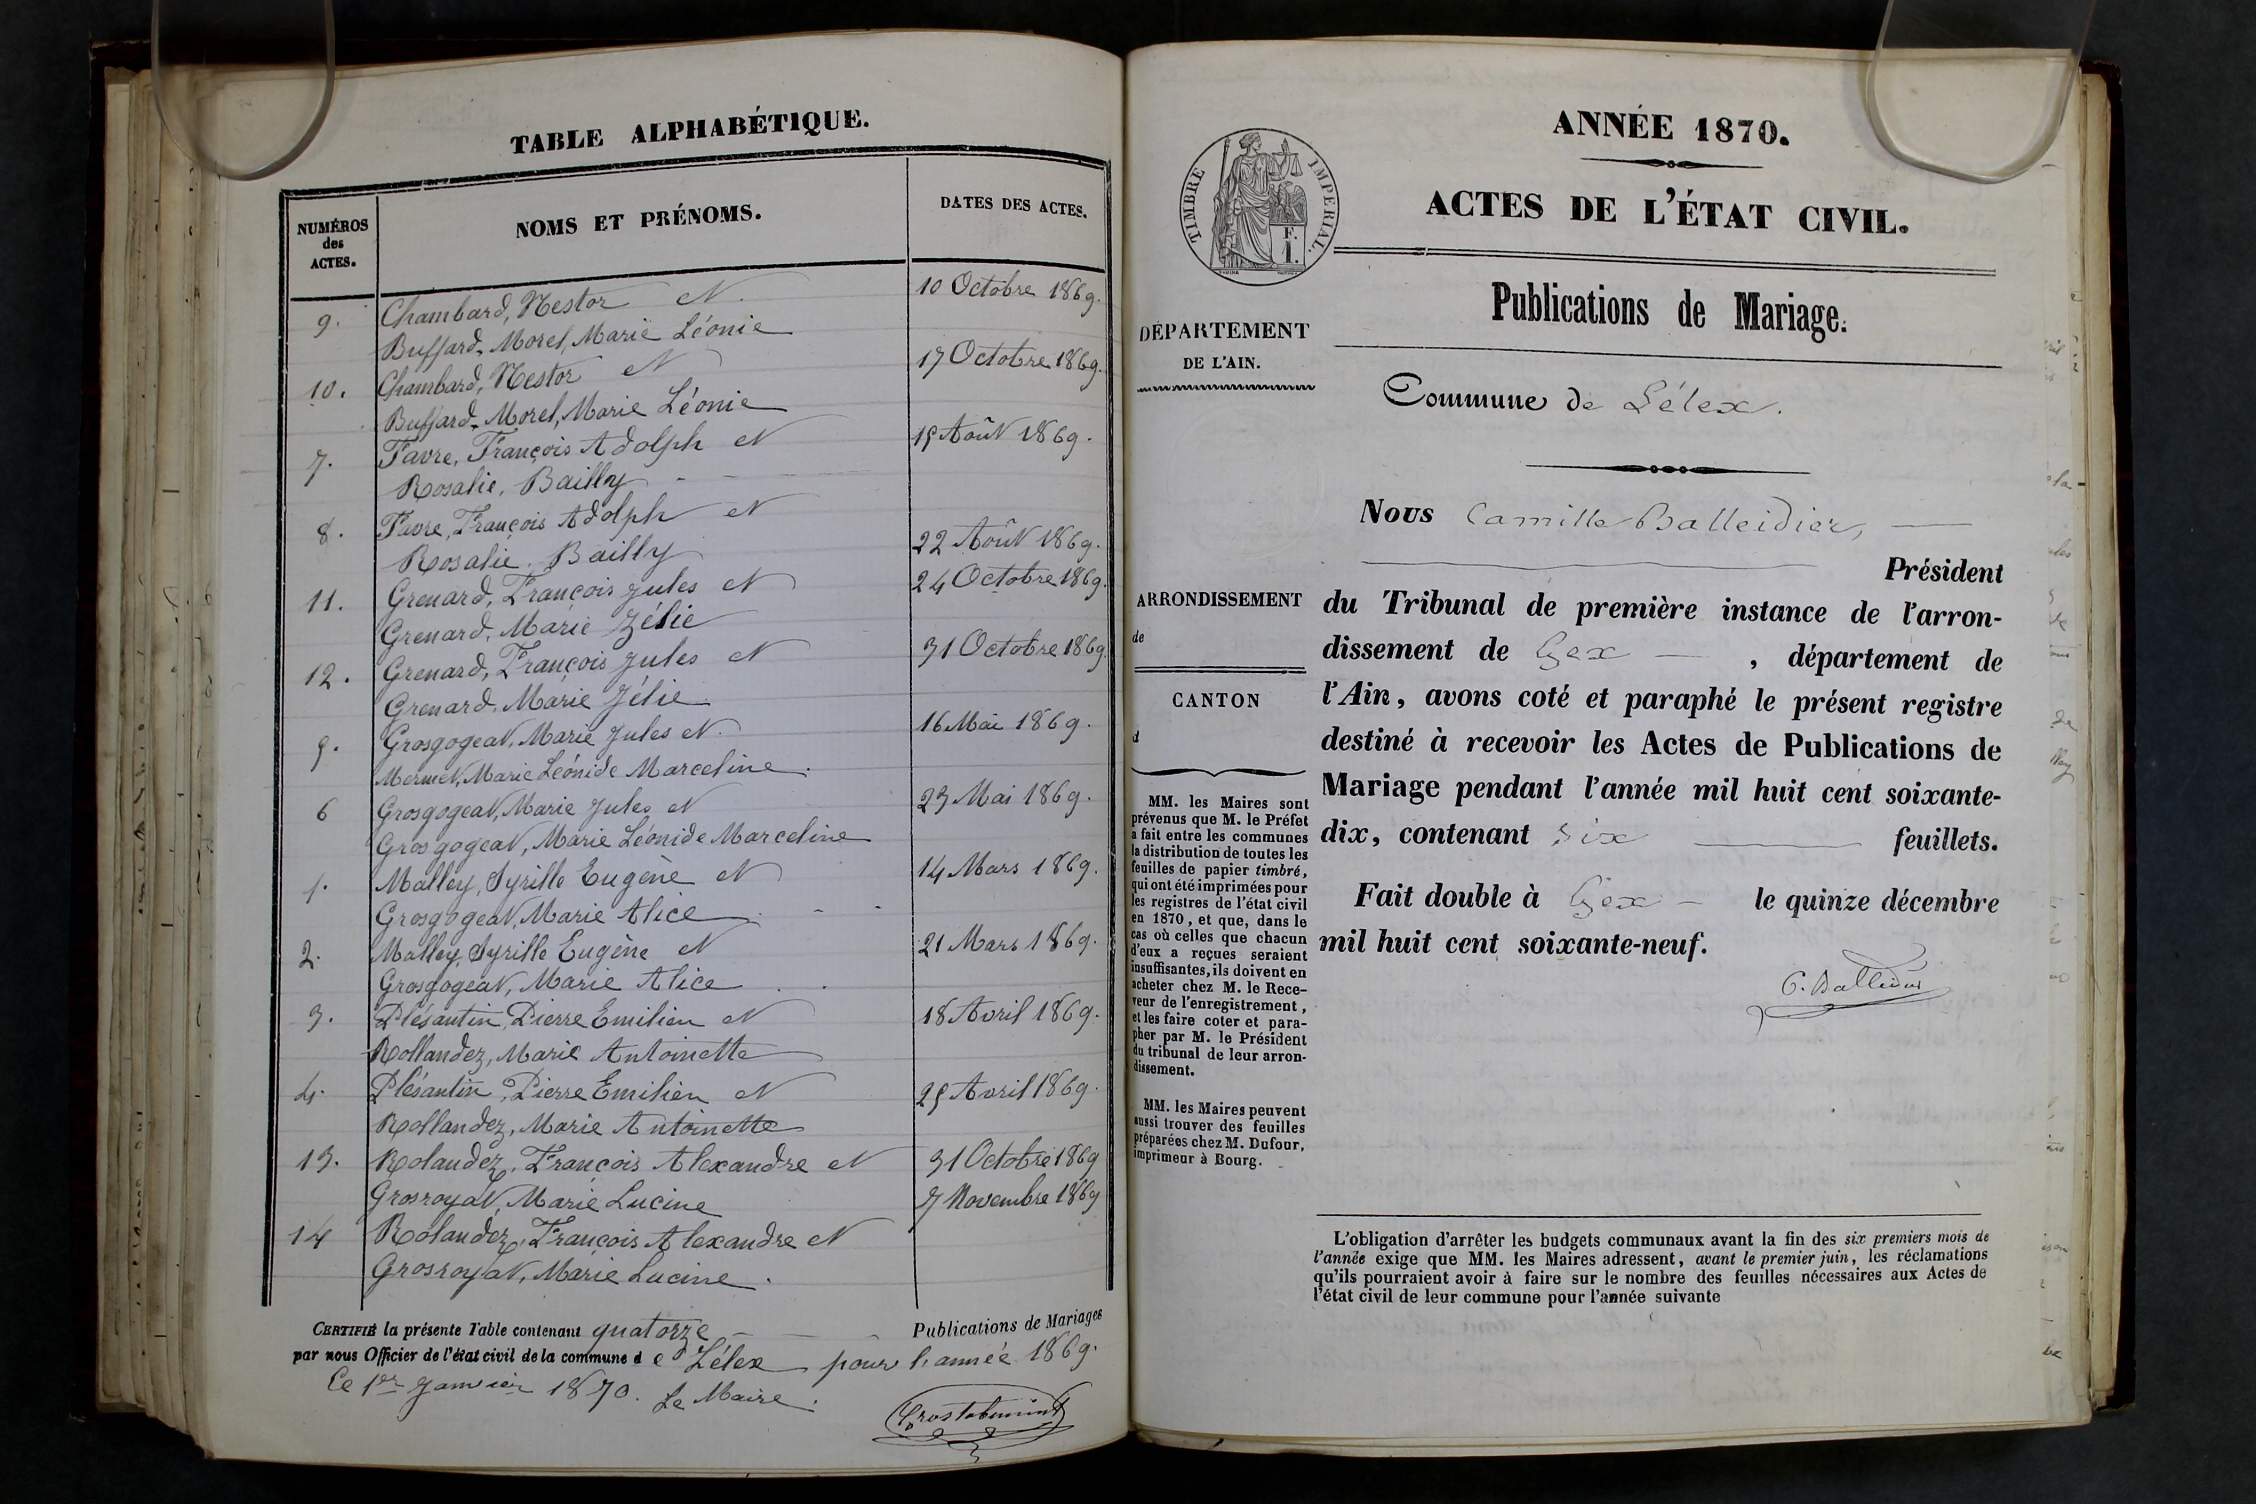 TABLE ALPHABÉTIQUE.
NUMÉROS des ACTES.
NOMS ET PRÉNOMS.
DATES DES ACTES.
9. Chambard, Nestor et 10 Octobre 1869.
Buffard-Morel, Marie Léonie
10. Chambard, Nestor et 17 Octobre 1869.
Buffard-Morel, Marie Léonie
7. Favre, François Adolph et 15 Août 1869.
Rosalie, Bailly
8. Favre, François Adolph et 22 Août 1869.
Rosalie. Bailly
11. Grenard, François Jules et 24 Octobre 1869.
Grenard, Marie Zélie
12. Grenard, François Jules et 31 Octobre 1869.
Grenard, Marie Zélie
5. Grosgogeat, Marie Jules et 16 Mai 1869.
Mermet, Marie Léonide Marceline.
6 Grosgogeat, Marie Jules et 23 Mai 1869.
Grosgogeat, Marie Léonide Marceline
1. Malley, Syrille Eugène et 14 Mars 1869.
Grosgogeat, Marie Alice
2. Malley, Syrille Eugène et 21 Mars 1869.
Grosgogeat, Marie Alice
3. Plésantin, Pierre Emilien et 18 Avril 1869.
Rollandez, Marie Antoinette
4. Plésantin, Pierre Emilien et 25 Avril 1869.
Rollandez, Marie Antoinette
13. Rolandez, François Alexandre et 31 Octobre 1869
Grosroyat, Marie Lucine 7 Novembre 1869
14 Rolandez, François Alexandre et
Grosroyat, Marie Lucine.
CERTIFIÉ la présente Table contenant quatorze Publications de Mariages
par nous Officier de l'état civil de la commune de Lélex pour l'année 1869.
Ce 1er Janvier 1870. Le Maire.
ANNÉE 1870.
ACTES DE L'ÉTAT CIVIL.
TIMBRE IMPERIAL.
F.
1.
Publications de Mariage.
DÉPARTEMENT
DE L'AIN.
Commune de Lélex.
Nous Camille Balleidier,
Président
du Tribunal de première instance de l'arron-
dissement de Gex, département de
l'Ain, avons coté et paraphé le présent registre
destiné à recevoir les Actes de Publications de
Mariage pendant l'année mil huit cent soixante-
dix, contenant six feuillets.
Fait double à Gex le quinze décembre
mil huit cent soixante-neuf.
C. Balleidier
ARRONDISSEMENT
de
CANTON
d
MM. les Maires sont
prévenus que M. le Préfet
a fait entre les communes
la distribution de toutes les
feuilles de papier timbré,
qui ont été imprimées pour
les registres de l'état civil
en 1870, et que, dans le
cas où celles que chacun
d'eux a reçues seraient
insuffisantes, ils doivent en
acheter chez M. le Rece-
veur de l'enregistrement,
et les faire coter et para-
pher par M. le Président
du tribunal de leur arron-
dissement.
MM. les Maires peuvent
aussi trouver des feuilles
préparées chez M. Dufour,
imprimeur à Bourg.
L'obligation d'arrêter les budgets communaux avant la fin des six premiers mois de
l'année exige que MM. les Maires adressent, avant le premier juin, les réclamations
qu'ils pourraient avoir à faire sur le nombre des feuilles nécessaires aux Actes de
l'état civil de leur commune pour l'année suivante